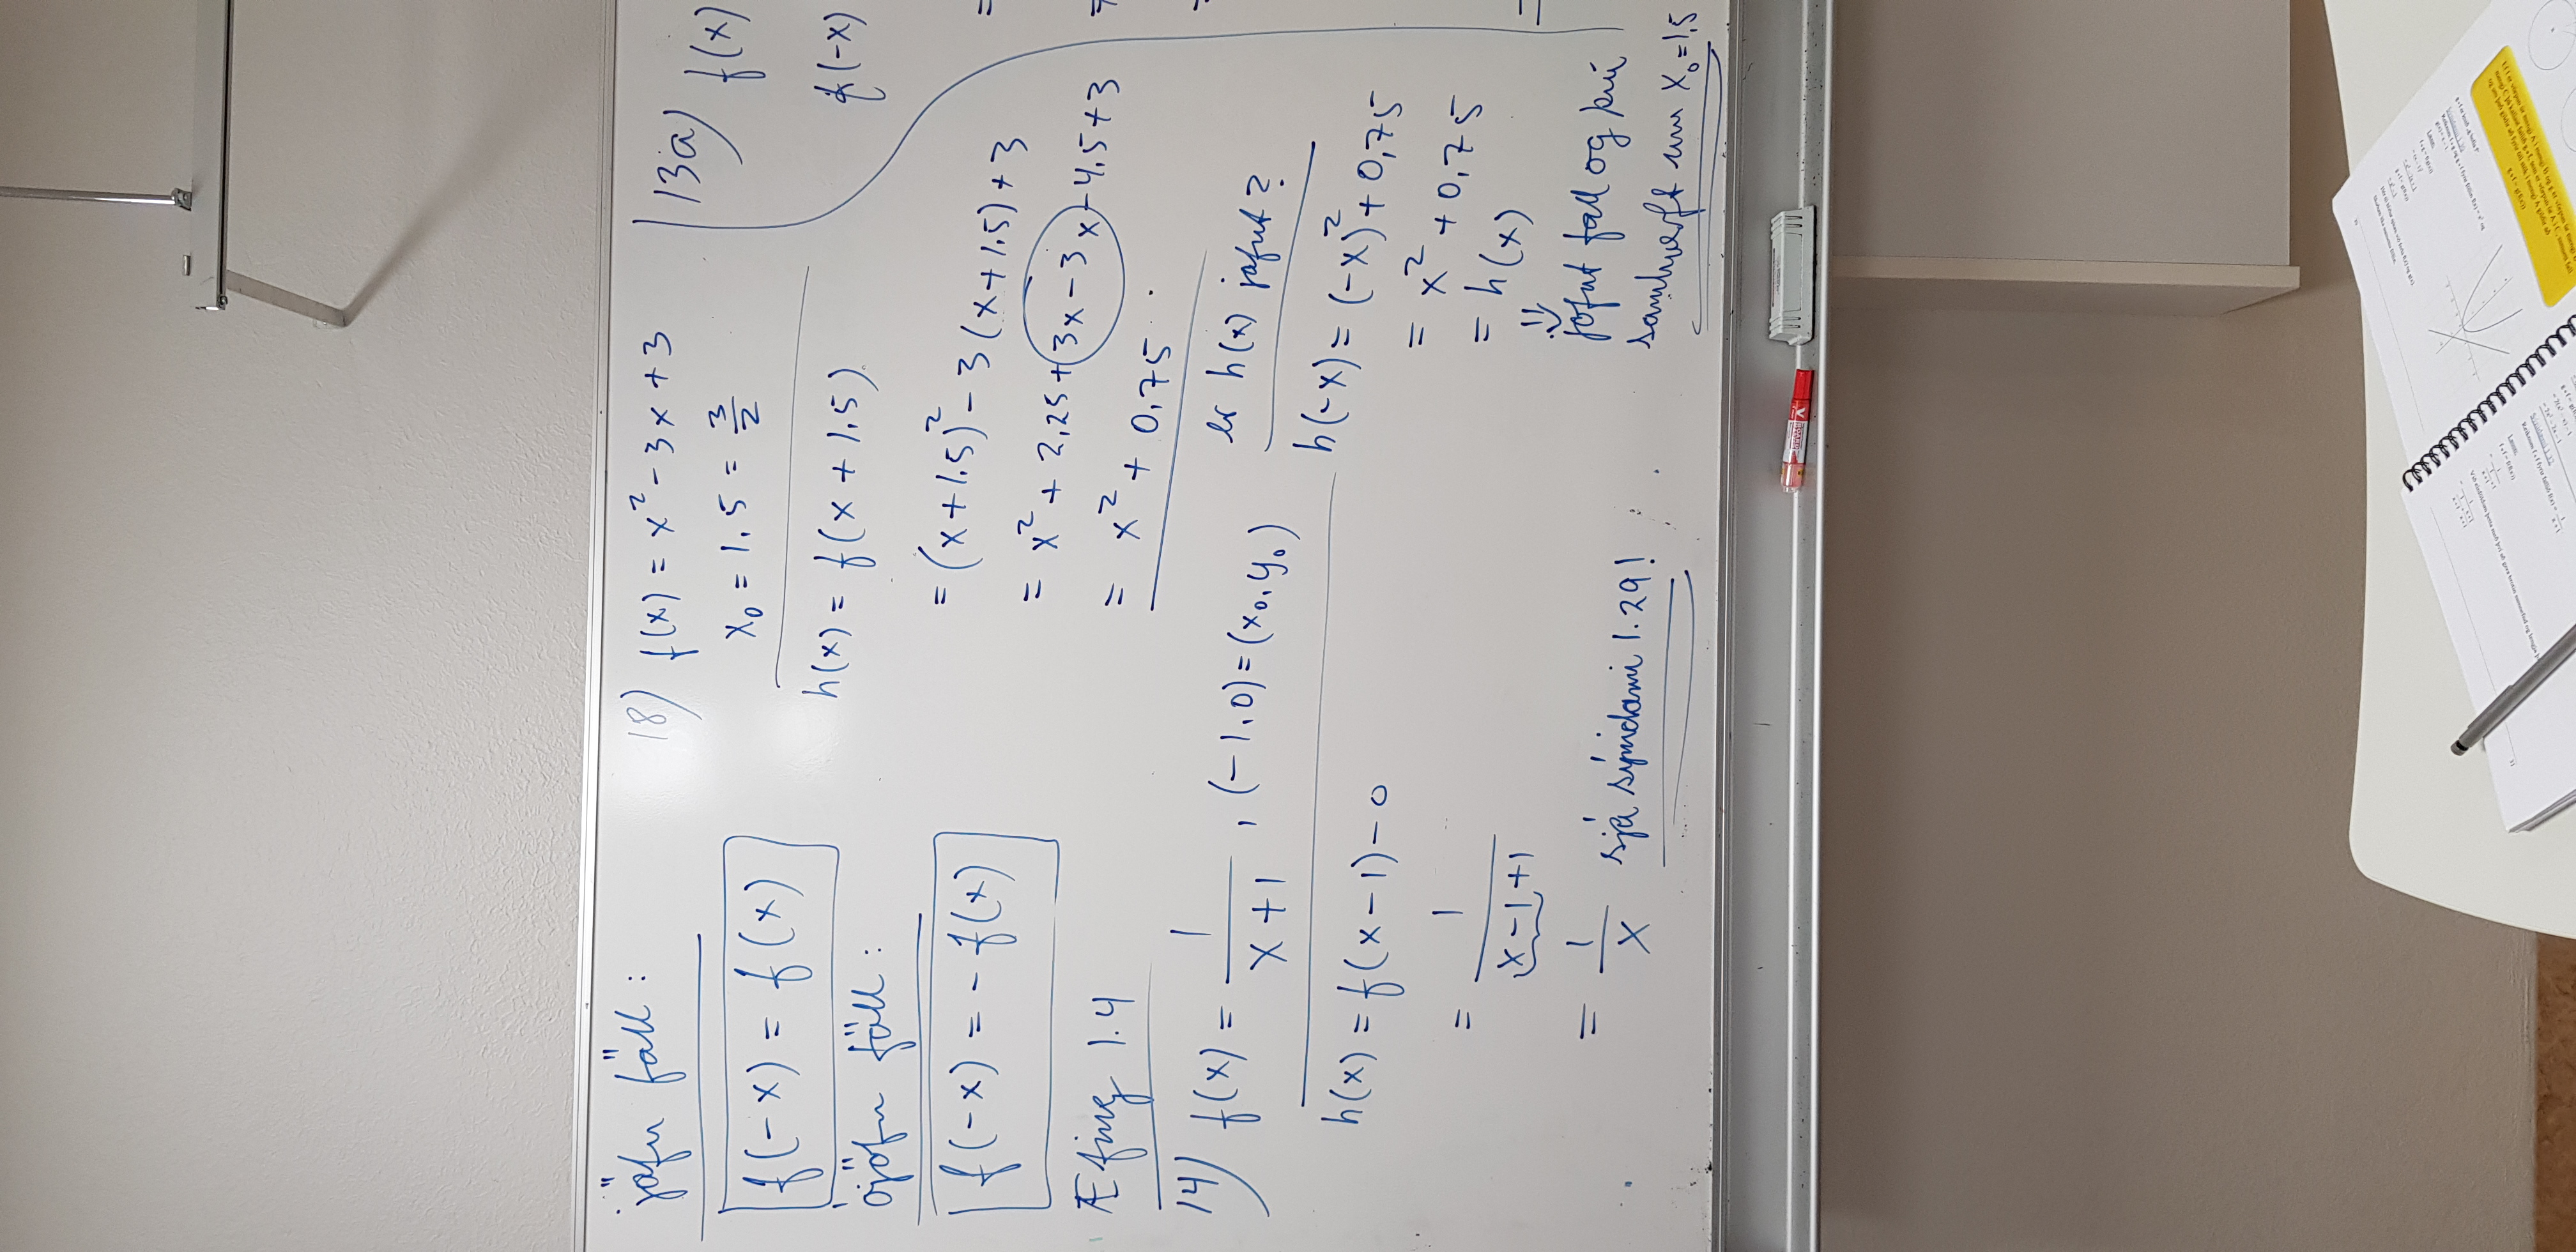 jöfn föll:
f(-x) = f(x)
ójöfn föll:
f(-x) = - f(x)
Æfing 1.4
14) f(x) = 1/(x+1), (-1,0) = (x₀, y₀)
h(x) = f(x-1) - 0
= 1/(x-1+1)
= 1/x sjá sýnidæmi 1.29!
18) f(x) = x² - 3x + 3
x₀ = 1,5 = 3/2
h(x) = f(x + 1,5)
= (x+1,5)² - 3(x+1,5) + 3
= x² + 2,25 + 3x - 3x - 4,5 + 3
= x² + 0,75
er h(x) jafnt?
h(-x) = (-x)² + 0,75
= x² + 0,75
= h(x)
⇓
jöfnt fall og því
samhverft um x₀ = 1,5
13a) f(x)
f(-x)
=
=
=
=